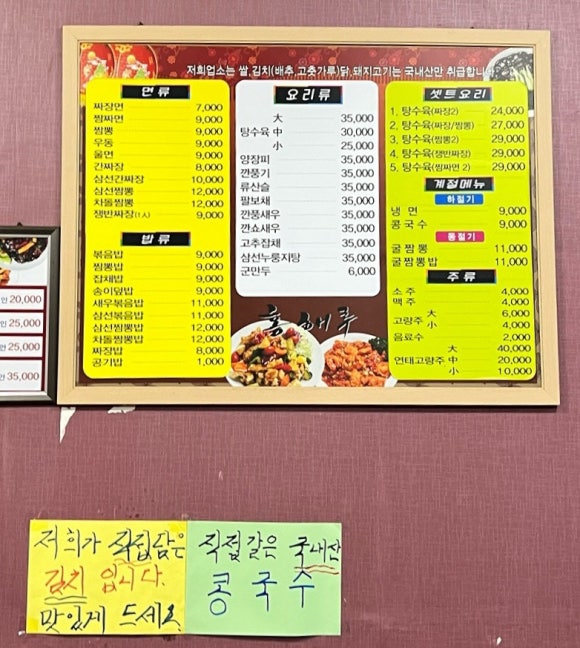 저희업소는 쌀,김치(배추,고춧가루)닭,돼지고기는 국내산만 취급합니다
면류
짜장면 7,000
짬짜면 9,000
짬뽕 9,000
우동 9,000
울면 9,000
간짜장 8,000
삼선간짜장 10,000
삼선짬뽕 12,000
차돌짬뽕 12,000
쟁반짜장(1人) 9,000
밥류
볶음밥 9,000
짬뽕밥 9,000
잡채밥 9,000
송이덮밥 9,000
새우볶음밥 11,000
삼선볶음밥 11,000
삼선짬뽕밥 12,000
차돌짬뽕밥 12,000
짜장밥 8,000
공기밥 1,000
요리류
大 35,000
탕수육 中 30,000
小 25,000
양장피 35,000
깐풍기 35,000
류산슬 35,000
팔보채 35,000
깐풍새우 35,000
깐쇼새우 35,000
고추잡채 35,000
삼선누룽지탕 35,000
군만두 6,000
홍해루
셋트요리
1. 탕수육(짜장2) 24,000
2. 탕수육(짜장/짬뽕) 27,000
3. 탕수육(짬뽕2) 29,000
4. 탕수육(쟁반짜장) 29,000
5. 탕수육(짬짜면 2) 29,000
계절메뉴
하절기
냉면 9,000
콩국수 9,000
동절기
굴짬뽕 11,000
굴짬뽕밥 11,000
주류
소주 4,000
맥주 4,000
고량주 大 6,000
小 4,000
음료수 2,000
大 40,000
연태고량주 中 20,000
小 10,000
인 20,000
인 25,000
인 25,000
인 35,000
저희가 직접담은
김치 입니다.
맛있게 드세요.
직접갈은 국내산
콩국수